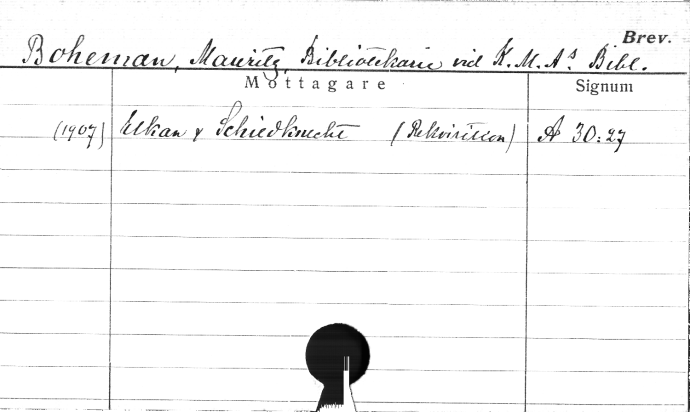 Brev.
Boheman, Mauritz, Bibliotekarie vid K. M. A:s Bibl.
Mottagare Signum
(1907) Elkan & Schiedknecht (Rekvisition) A 30:27